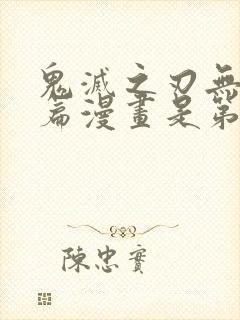 鬼滅之刃無
篇漫畫是第
陳忠實